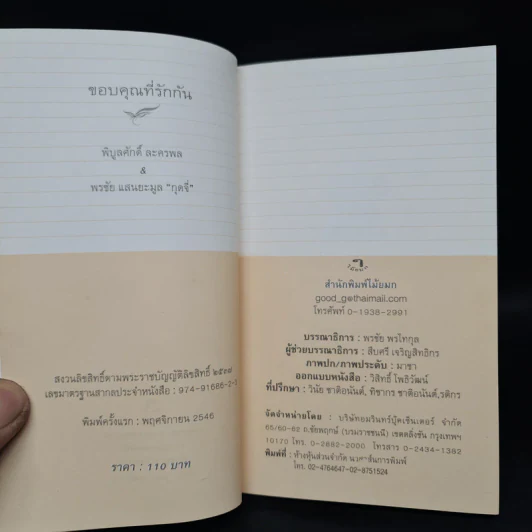 ขอบคุณที่รักกัน
พิบูลศักดิ์ ละครพล
&
พรชัย แสนยะมูล "กุดจี่"
สงวนลิขสิทธิ์ตามพระราชบัญญัติลิขสิทธิ์ ๒๕๓๗
เลขมาตรฐานสากลประจำหนังสือ : 974-91686-2-5
พิมพ์ครั้งแรก : พฤศจิกายน 2546
ราคา : 110 บาท
สำนักพิมพ์ไม้ยมก
good_g@thaimail.com
โทรศัพท์ 0-1938-2991
บรรณาธิการ : พรชัย พรโทกุล
ผู้ช่วยบรรณาธิการ : สืบศรี เจริญสิทธิกร
ภาพปก/ภาพประดับ : มาชา
ออกแบบหนังสือ : วิสิทธิ์ โพธิวัฒน์
ที่ปรึกษา : วินัย ชาติอนันต์, ทิชากร ชาติอนันต์,รติกร
จัดจำหน่ายโดย : บริษัทอมรินทร์บุ๊คเซ็นเตอร์ จำกัด
65/60-62 ถ.ชัยพฤกษ์ (บรมราชชนนี) เขตตลิ่งชัน กรุงเทพฯ
10170 โทร. 0-2882-2000 โทรสาร 0-2434-1382
พิมพ์ที่ : ห้างหุ้นส่วนจำกัด นวสาส์นการพิมพ์
โทร. 02-4764647-02-8751524